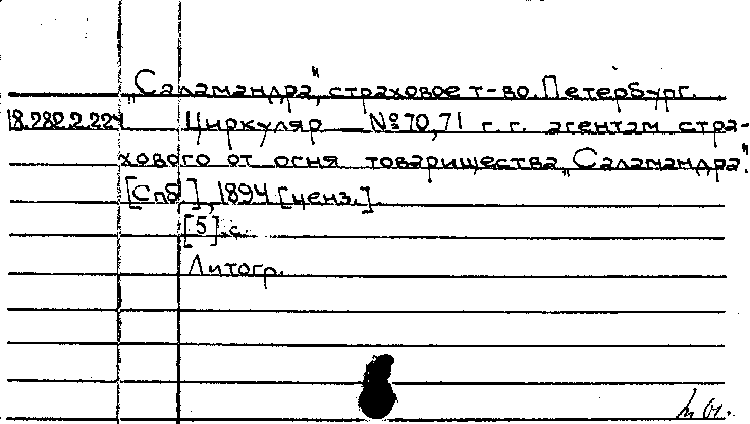 „Саламандра", страховое т-во. Петербург.
18.282.2.224 Циркуляр № 70,71 г.г. агентам стра-
хового от огня товарищества „Саламандра".
[Спб.], 1894 [ценз.].
[5] с.
Литогр.